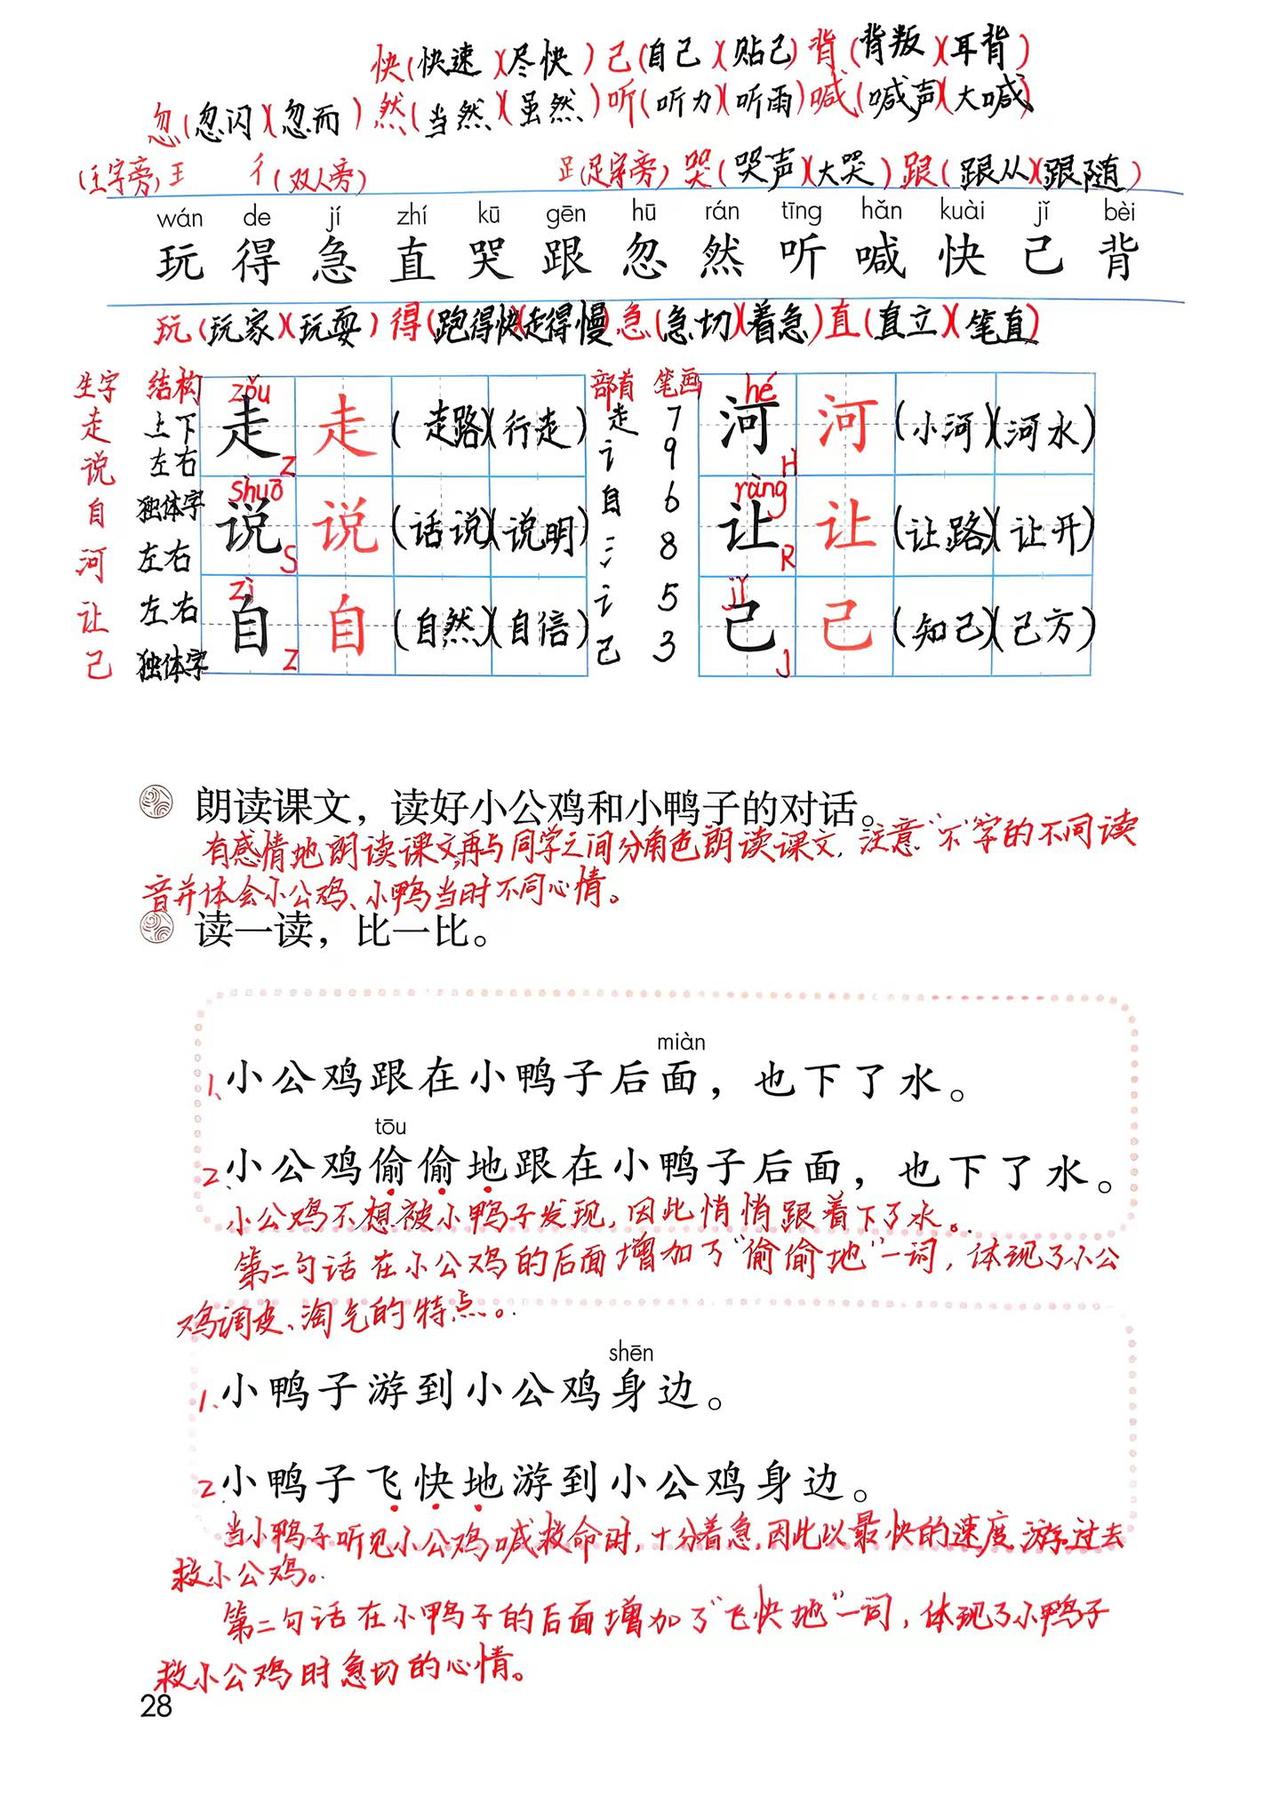 快(快速)(尽快)己(自己)(贴己)背(背叛)(耳背)
忽(忽闪)(忽而)然(当然)(虽然)听(听力)(听雨)喊(喊声)(大喊)
(王字旁)王 彳(双人旁) 𧾷(足字旁)哭(哭声)(大哭)跟(跟从)(跟随)
wán de jí zhí kū gēn hū rán tīng hǎn kuài jǐ bèi
玩 得 急 直 哭 跟 忽 然 听 喊 快 己 背
玩(玩家)(玩耍)得(跑得快)(走得慢)急(急切)(着急)直(直立)(笔直)
生字 结构 zǒu 部首 笔画 hé
走 上下 走 Z 走 (走路)(行走) 走 7 河 H 河 (小河)(河水)
说 左右 shuō 说 S 说 (话说)(说明) 讠 9 ràng 让 R 让 (让路)(让开)
自 独体字 zì 自 Z 自 (自然)(自信) 自 6 jǐ 己 J 己 (知己)(己方)
河 左右 氵 8
让 左右 讠 5
己 独体字 己 3
朗读课文，读好小公鸡和小鸭子的对话。
有感情地朗读课文,再与同学之间分角色朗读课文,注意“不”字的不同读
音并体会小公鸡、小鸭当时不同心情。
读一读，比一比。
miàn
1、小公鸡跟在小鸭子后面，也下了水。
tōu
2、小公鸡偷偷地跟在小鸭子后面，也下了水。
小公鸡不想被小鸭子发现,因此悄悄跟着下了水。
第二句话在小公鸡的后面增加了“偷偷地”一词,体现了小公
鸡调皮、淘气的特点。
shēn
1、小鸭子游到小公鸡身边。
2、小鸭子飞快地游到小公鸡身边。
当小鸭子听见小公鸡喊救命时,十分着急,因此以最快的速度游过去
救小公鸡。
第二句话在小鸭子的后面增加了“飞快地”一词,体现了小鸭子
救小公鸡时急切的心情。
28